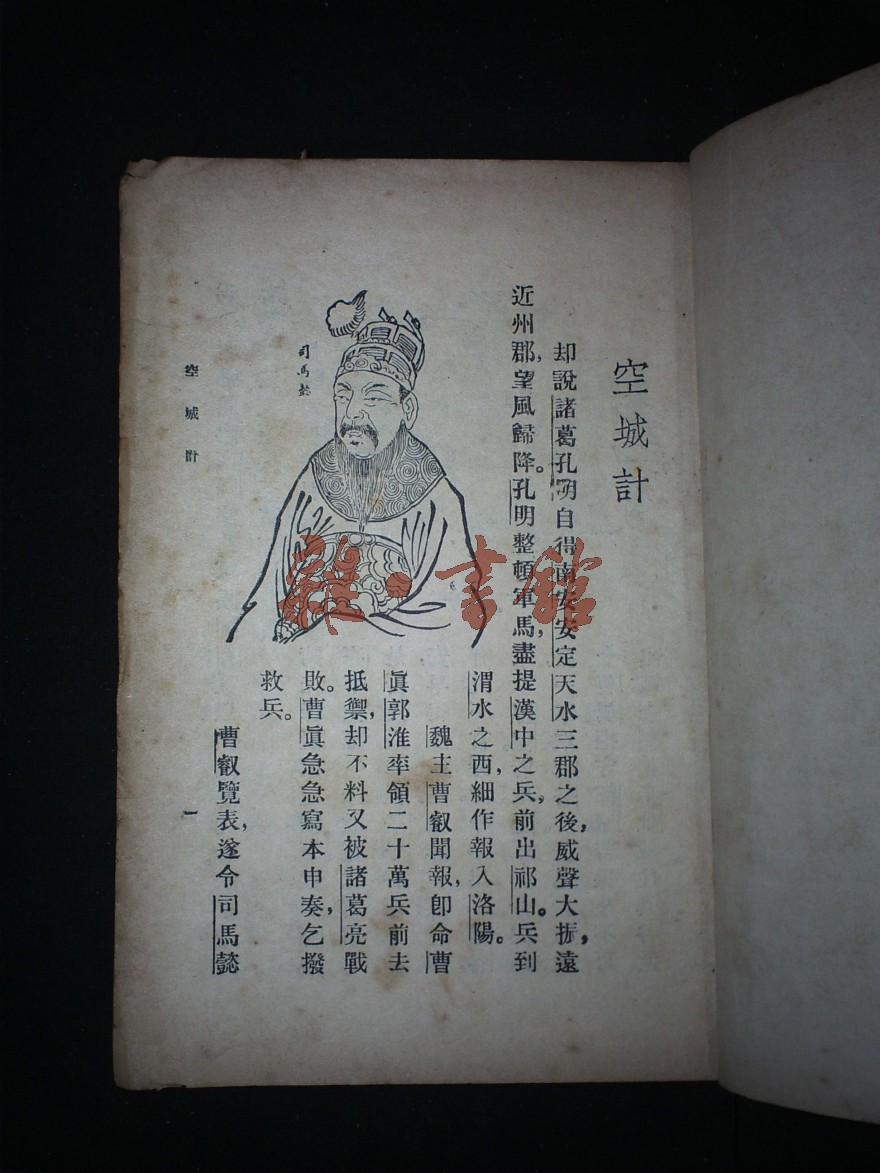 空城計
却說諸葛孔明自得南安安定天水三郡之後，威聲大振，遠
近州郡，望風歸降。孔明整頓軍馬，盡提漢中之兵，前出祁山。兵到
渭水之西，細作報入洛陽。
魏主曹叡聞報，卽命曹
眞郭淮率領二十萬兵前去
抵禦，却不料又被諸葛亮戰
敗。曹眞急急寫本申奏，乞撥
救兵。
曹叡覽表，遂令司馬懿
司馬懿
空城計
一
書館